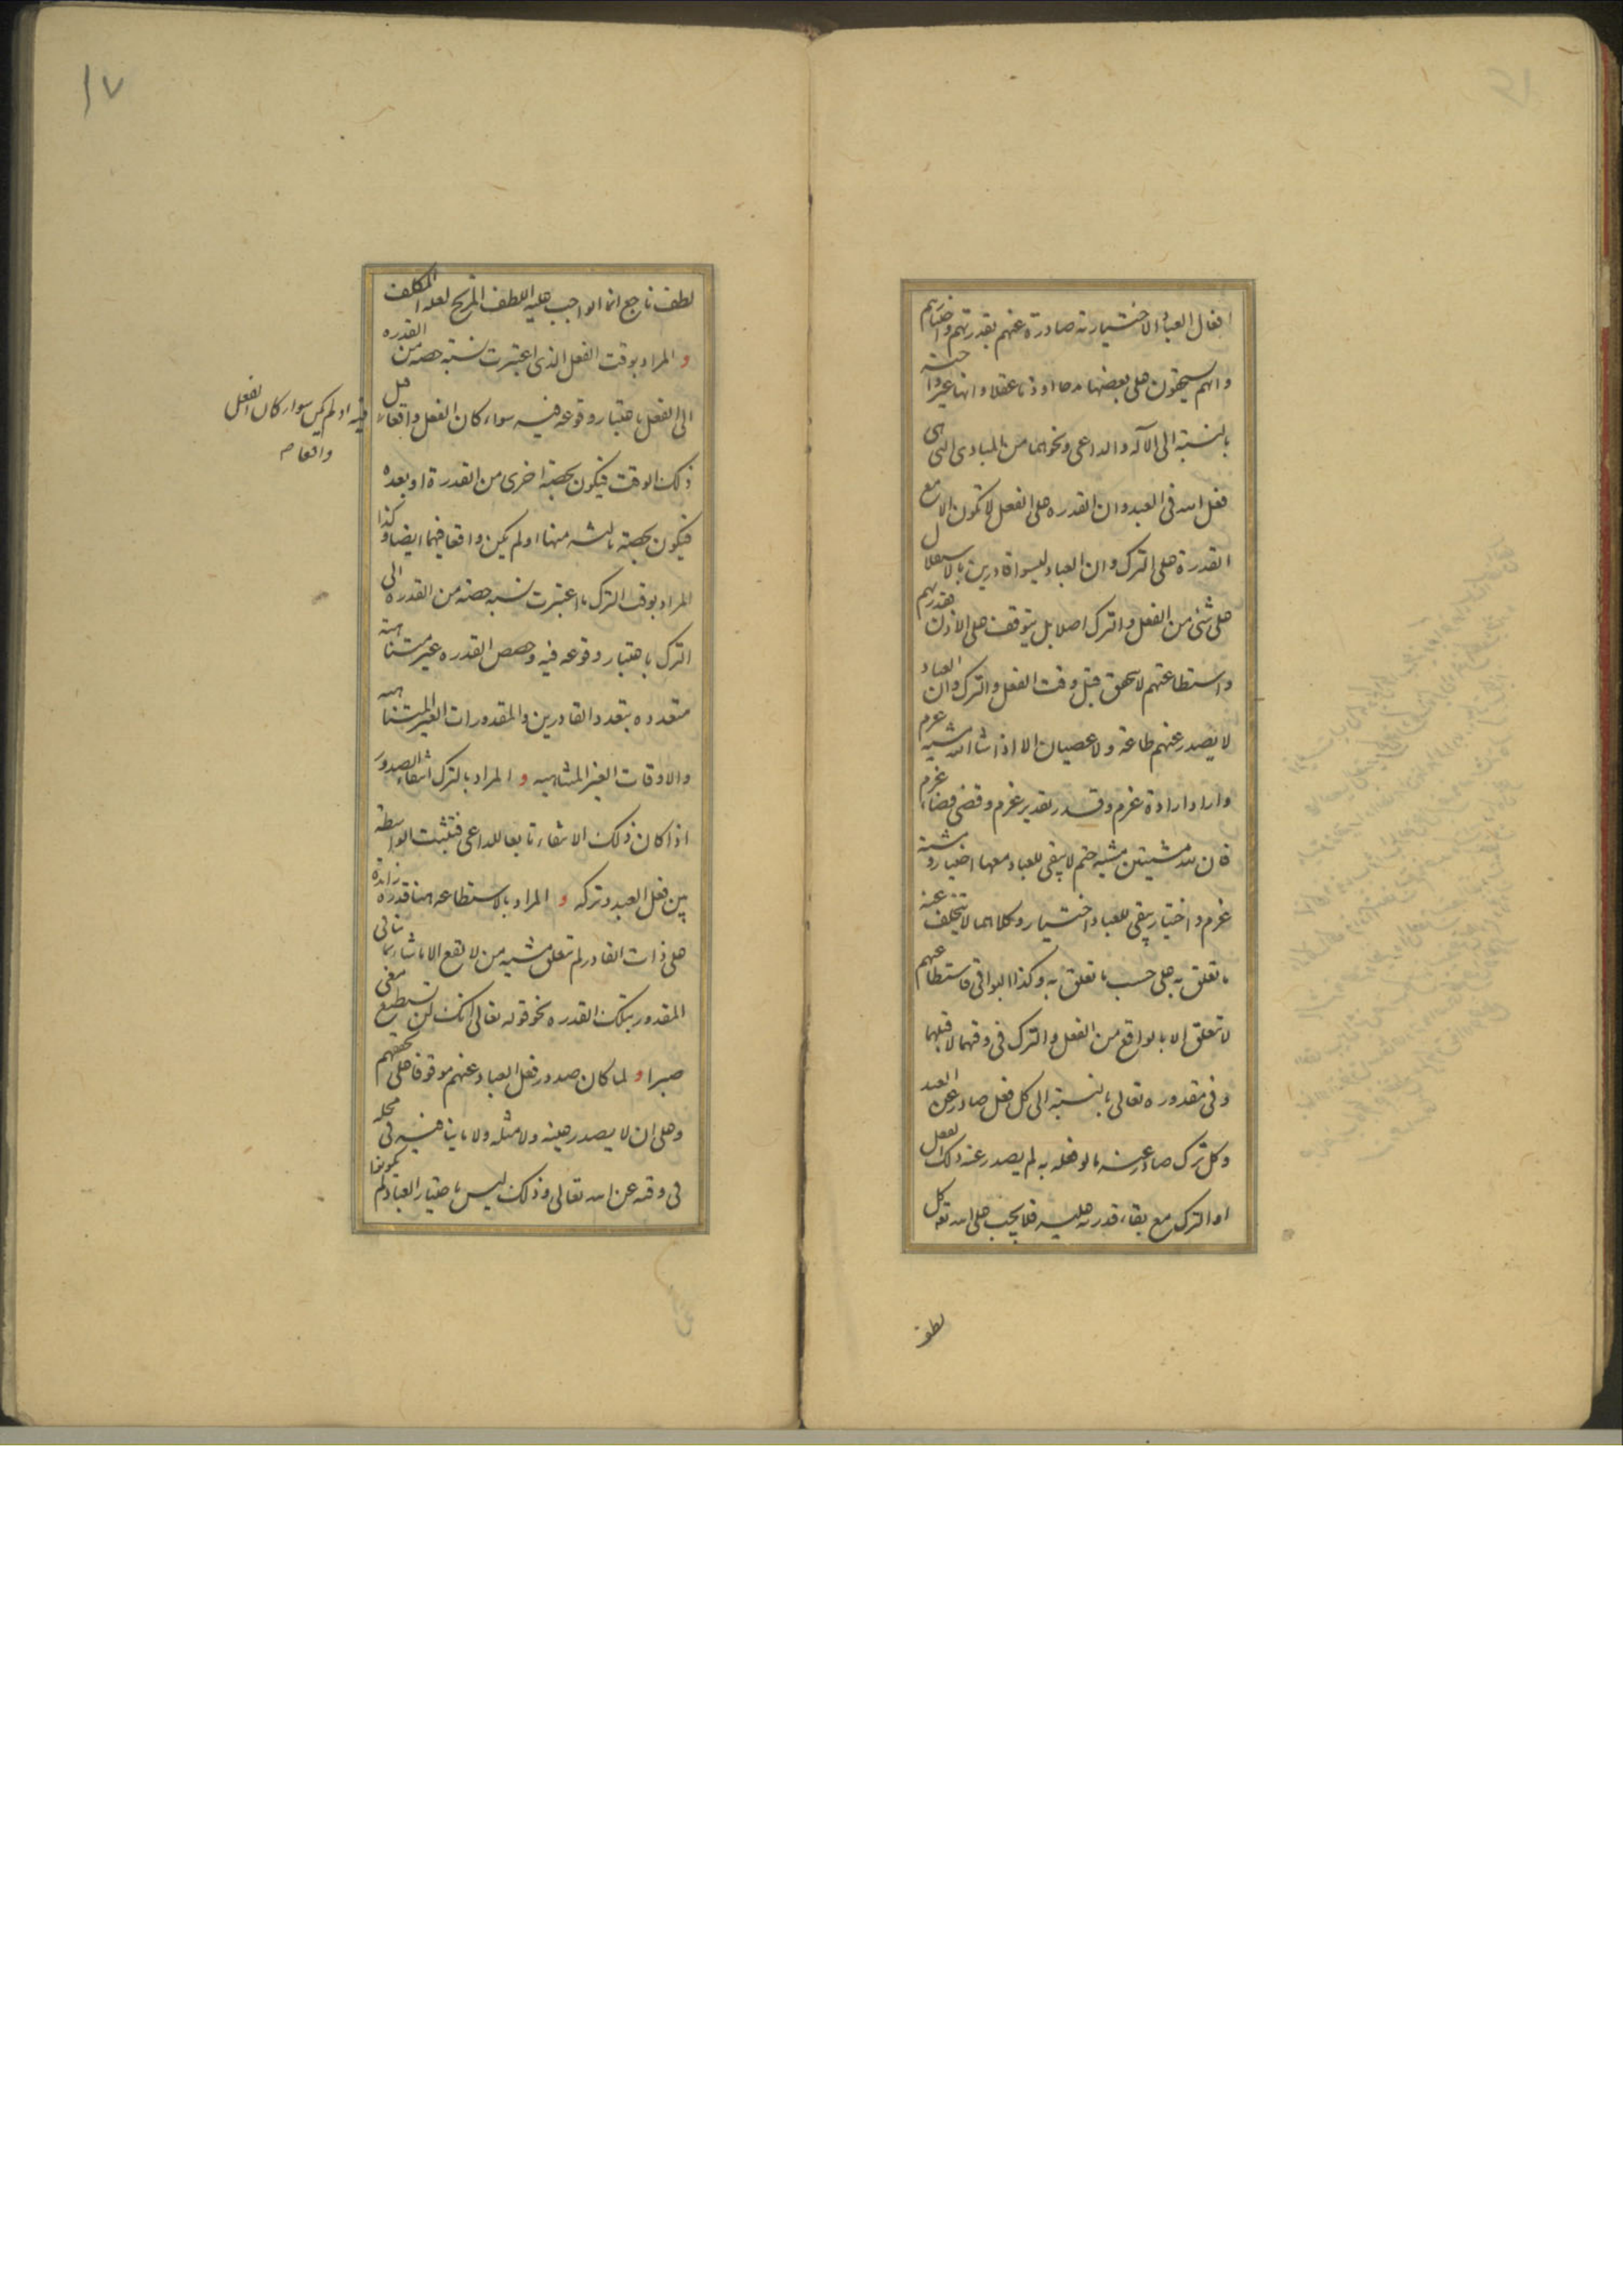 افعال العباد الاختيارية صادرة عنهم بقدرتهم واختيارهم
وانهم يستحقون على بعضها مدحا او ذما عقلا وانها غير واجبة
بالنسبة الى الآلة والداعى ونحوهما من المبادى التى هى
فعل الله فى العبد وان القدره على الفعل لا تكون الا مع
القدرة على الترك وان العباد ليسوا قادرين بالاستقلال
على شئ من الفعل والترك اصلا بل يتوقف على الاذن فقدرتهم
واستطاعتهم لا تتحقق قبل وقت الفعل والترك وان العباد
لا يصدر عنهم طاعة ولا عصيان الا اذا شاء الله مشية عزم
واراد ارادة عزم وقدر تقدير عزم وقضى قضاء عزم
فان لله مشيتين مشية حتم لا يبقى للعباد معها اختيار ومشية
عزم واختيار يبقى للعباد اختيار وكلاهما لا يتخلف عنه
ما تعلق به على حسب ما تعلق به وكذا البواقى فاستطاعتهم
لا تتعلق الا بالواقع من الفعل والترك فى وقتهما لا قبلهما
وفى مقدوره تعالى بالنسبة الى كل فعل صادر عن العبد
وكل ترك صادر عنه ما لو فعله به لم يصدر عنه ذلك الفعل
او الترك مع بقاء قدرته عليه فلا يجب على الله تعه كل
لطف
١٧
لطف ناجع انما الواجب عليه اللطف المزيح لعلة المكلف
و المراد بوقت الفعل الذى اعتبرت نسبة حصة من القدره
الى الفعل باعتبار وقوعه فيه سواء كان الفعل واقعا قبل
فيه او لم يكن سواء كان الفعل
واقعا م
ذلك الوقت فيكون بحصة اخرى من القدرة او بعده
فيكون بحصة ثالثه منها او لم يكن واقعا فيهما ايضا وكذا
المراد بوقت الترك ما اعتبرت نسبة حصة من القدره الى
الترك باعتبار وقوعه فيه وحصص القدره غير متناهية
متعدده بتعدد القادرين والمقدورات الغير المتناهيه
والاوقات الغير المتناهيه و المراد بالترك انتفاء الصدور
اذا كان ذلك الانتفاء تابعا للداعى فتثبت الواسطة
بين فعل العبد وتركه و المراد بالاستطاعه هنا قدرة زائدة
على ذات القادر لم تتعلق مشيه من لا يقع الا ما شاء بما ينافى
المقدور بتلك القدره نحو قوله تعالى انك لن تستطيع معى
صبرا و لما كان صدور فعل العباد عنهم موقوفا على
وعلى ان لا يصدر عينه ولا مثله ولا ما ينافيه فى محله
فى وقته عن الله تعالى وذلك ليس باختيار العباد لم يكونوا